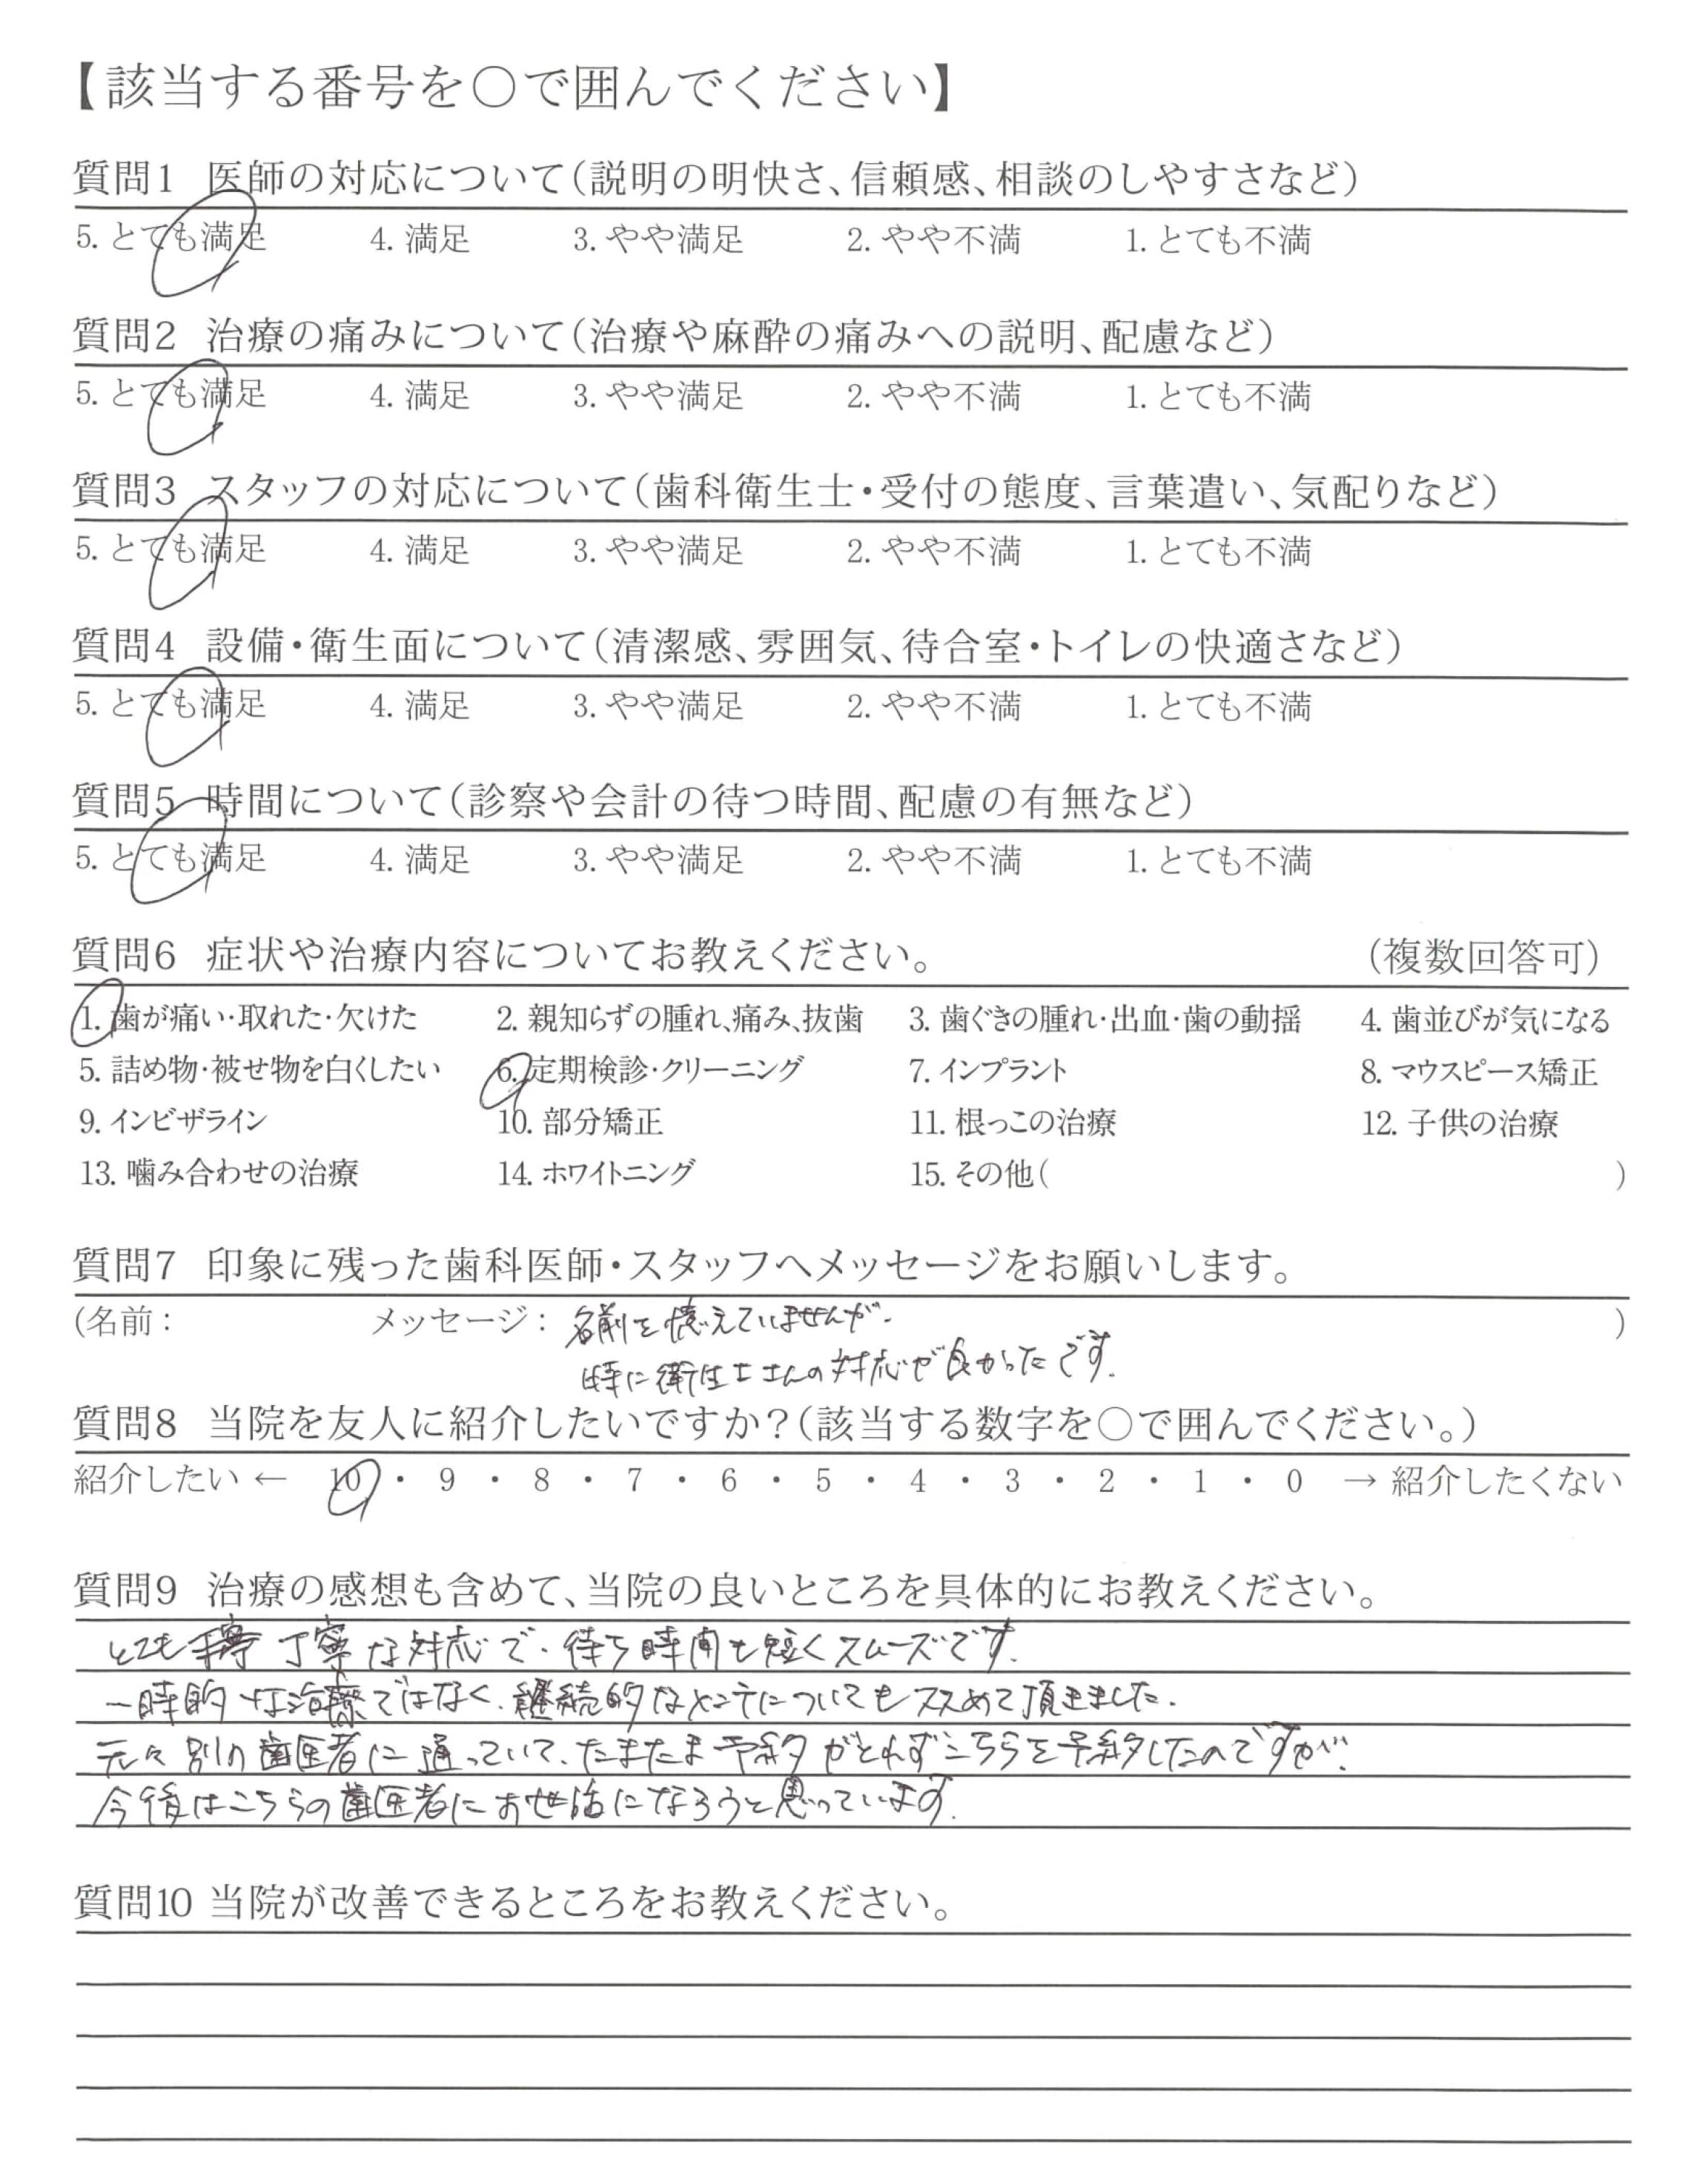 【該当する番号を○で囲んでください】
質問1 医師の対応について(説明の明快さ、信頼感、相談のしやすさなど)
5. とても満足 4. 満足 3. やや満足 2. やや不満 1. とても不満
質問2 治療の痛みについて(治療や麻酔の痛みへの説明、配慮など)
5. とても満足 4. 満足 3. やや満足 2. やや不満 1. とても不満
質問3 スタッフの対応について(歯科衛生士・受付の態度、言葉遣い、気配りなど)
5. とても満足 4. 満足 3. やや満足 2. やや不満 1. とても不満
質問4 設備・衛生面について(清潔感、雰囲気、待合室・トイレの快適さなど)
5. とても満足 4. 満足 3. やや満足 2. やや不満 1. とても不満
質問5 時間について(診察や会計の待つ時間、配慮の有無など)
5. とても満足 4. 満足 3. やや満足 2. やや不満 1. とても不満
質問6 症状や治療内容についてお教えください。 (複数回答可)
1. 歯が痛い・取れた・欠けた 2. 親知らずの腫れ、痛み、抜歯 3. 歯ぐきの腫れ・出血・歯の動揺 4. 歯並びが気になる
5. 詰め物・被せ物を白くしたい 6. 定期検診・クリーニング 7. インプラント 8. マウスピース矯正
9. インビザライン 10. 部分矯正 11. 根っこの治療 12. 子供の治療
13. 噛み合わせの治療 14. ホワイトニング 15. その他( )
質問7 印象に残った歯科医師・スタッフへメッセージをお願いします。
(名前: メッセージ: 名前を憶えていませんが、 )
特に衛生士さんの対応が良かったです。
質問8 当院を友人に紹介したいですか?(該当する数字を○で囲んでください。)
紹介したい ← 10 ・ 9 ・ 8 ・ 7 ・ 6 ・ 5 ・ 4 ・ 3 ・ 2 ・ 1 ・ 0 → 紹介したくない
質問9 治療の感想も含めて、当院の良いところを具体的にお教えください。
とても 丁寧な対応で、待ち時間も短くスムーズです。
一時的な治療ではなく、継続的なメンテについてもススめて頂きました。
元々別の歯医者に通っていて、たまたま予約がとれずこちらを予約したのですが、
今後はこちらの歯医者にお世話になろうと思っています。
質問10 当院が改善できるところをお教えください。